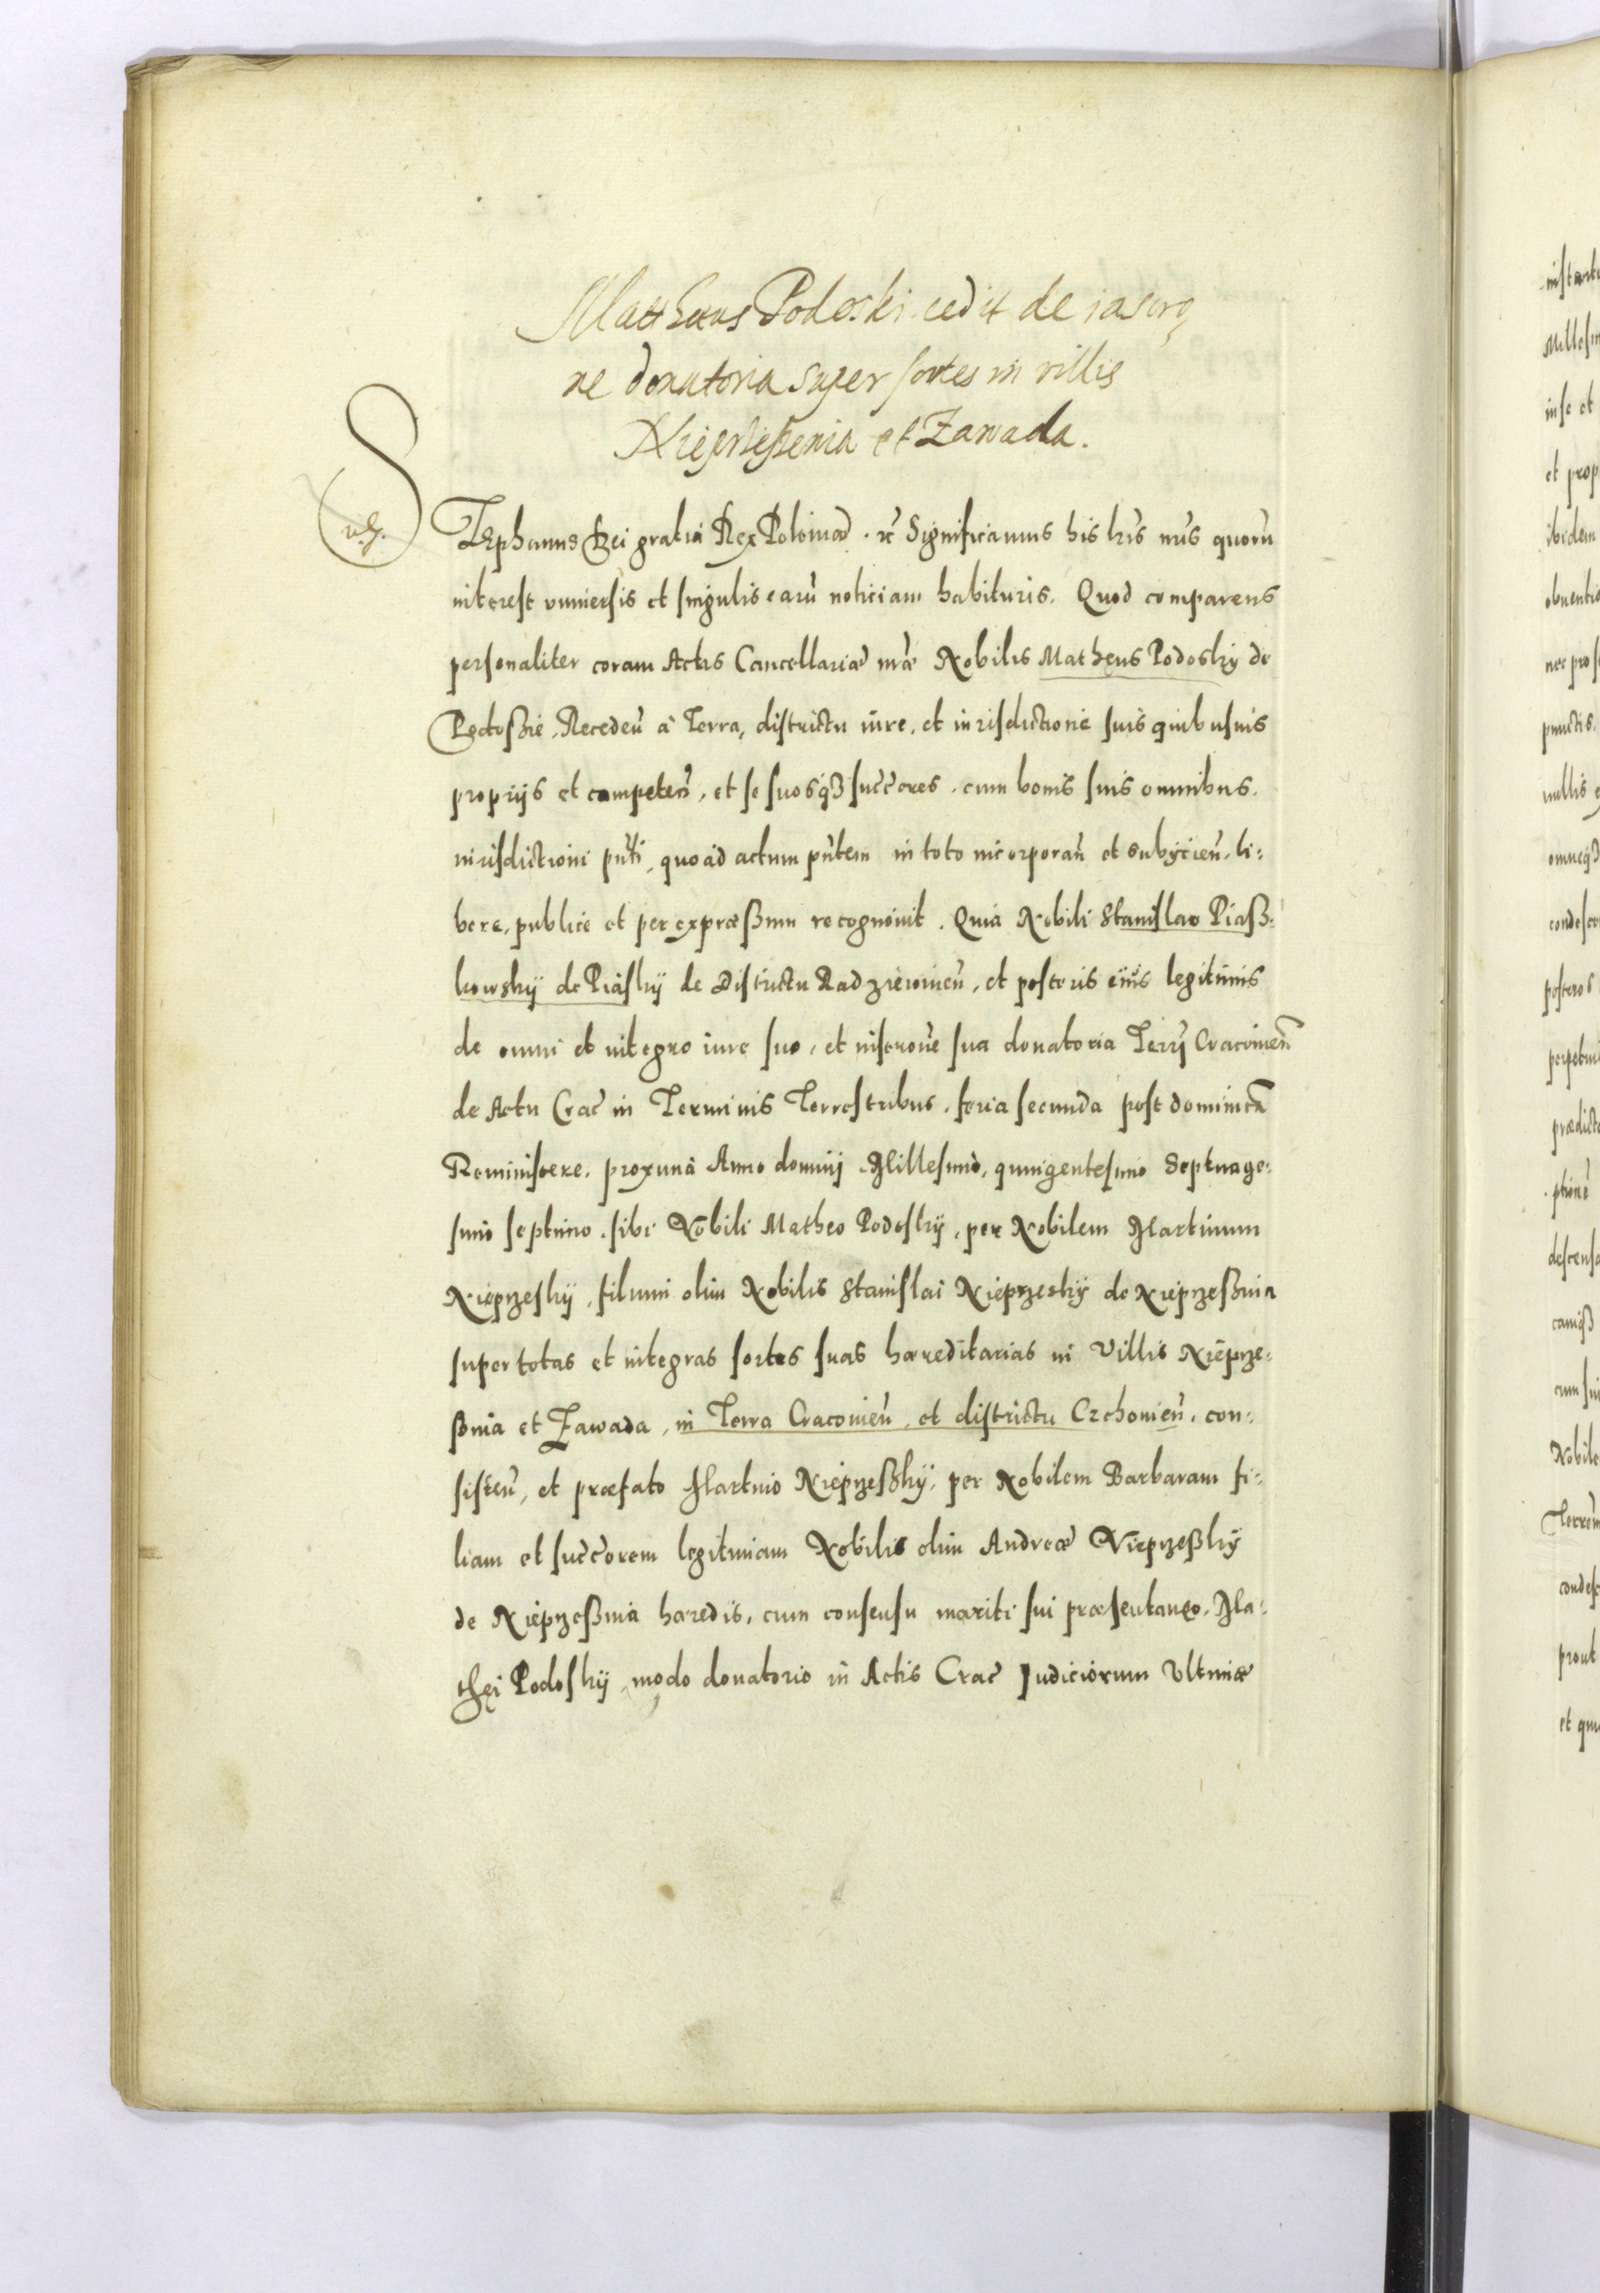 Mattheus Podoski cedit de inscrᶎ
ne donatoria super sortes in villis
Nieprzesznia et Zawada.
STEphanus Dei gratia Rex Poloniæ. &c̃ Significamus his lr̃is nr̃is quorũ
interest vniuersis et singulis earũ noticiam habituris. Quod comparens
personaliter coram Actis Cancellariæ nr̃æ Nobilis Matheus Podosky de
Podoßie, Recedeñ à Terra, districtu iure, et iurisdictione suis quibusuis
proprijs et competeñ, et se suosqʒ succ̃ores. cum bonis suis omnibus.
iurisdictioni pñti, quoad actum pñtem in toto incorporañ et subijcieñ. li:
bere, publice et per expræßum recognouit. Quia Nobili Stanislao Piaß:
kowsky de Piasky de districtu Radzieiouieñ, et posteris eius legitimis
de omni et integro iure suo, et inscr̃one sua donatoria Terrj Cracouieñ
de Actu Crac̃ in Terminis Terrestribus. feria secunda post dominicã
Reminiscere. proxima Anno dominj Millesimo, quingentesimo Septuage:
simo septimo. sibi Nobili Matheo Podosky, per Nobilem Martinum
Nieprzesky, filium olim Nobilis Stanislai Nieprzesky de Nieprzeßnia
super totas et integras sortes suas hæreditarias in Villis Nieprze:
ßnia et Zawada, in Terra Cracouieñ, et districtu Czchouieñ. con:
sisteñ, et præfato Martino Nieprzeßky, per Nobilem Barbaram fi:
liam et succ̃orem legitimam Nobilis olim Andreæ Nieprzeßky
de Nieprzeßnia hæredis, cum consensu mariti sui præsentaneo. Ma:
thei Podosky, modo donatorio in Actis Crac̃ Judiciorum Vltimæ